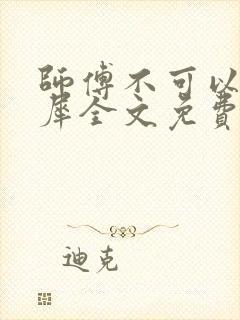 師傅不可以
犀全文免費
迪克